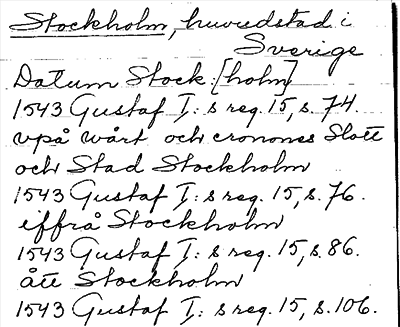 Stockholm, huvudstad i
Sverige
Datum Stock:[holm]
1543 Gustaf I:s reg. 15, s. 74.
vpå wårt och cronones Slott
och Stad Stockholm
1543 Gustaf I:s reg. 15, s. 76.
iffrå Stockholm
1543 Gustaf I:s reg. 15, s. 86.
ått Stockholm
1543 Gustaf I:s reg. 15, s. 106.